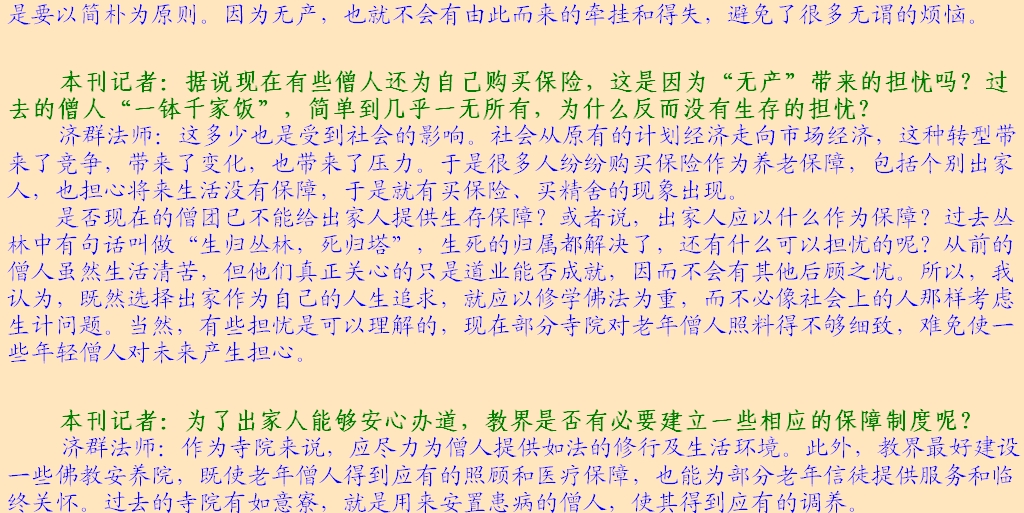 是要以简朴为原则。因为无产，也就不会有由此而来的牵挂和得失，避免了很多无谓的烦恼。
本刊记者：据说现在有些僧人还为自己购买保险，这是因为“无产”带来的担忧吗？过
去的僧人“一钵千家饭”，简单到几乎一无所有，为什么反而没有生存的担忧？
济群法师：这多少也是受到社会的影响。社会从原有的计划经济走向市场经济，这种转型带
来了竞争，带来了变化，也带来了压力。于是很多人纷纷购买保险作为养老保障，包括个别出家
人，也担心将来生活没有保障，于是就有买保险、买精舍的现象出现。
是否现在的僧团已不能给出家人提供生存保障？或者说，出家人应以什么作为保障？过去丛
林中有句话叫做“生归丛林，死归塔”，生死的归属都解决了，还有什么可以担忧的呢？从前的
僧人虽然生活清苦，但他们真正关心的只是道业能否成就，因而不会有其他后顾之忧。所以，我
认为，既然选择出家作为自己的人生追求，就应以修学佛法为重，而不必像社会上的人那样考虑
生计问题。当然，有些担忧是可以理解的，现在部分寺院对老年僧人照料得不够细致，难免使一
些年轻僧人对未来产生担心。
本刊记者：为了出家人能够安心办道，教界是否有必要建立一些相应的保障制度呢？
济群法师：作为寺院来说，应尽力为僧人提供如法的修行及生活环境。此外，教界最好建设
一些佛教安养院，既使老年僧人得到应有的照顾和医疗保障，也能为部分老年信徒提供服务和临
终关怀。过去的寺院有如意寮，就是用来安置患病的僧人，使其得到应有的调养。